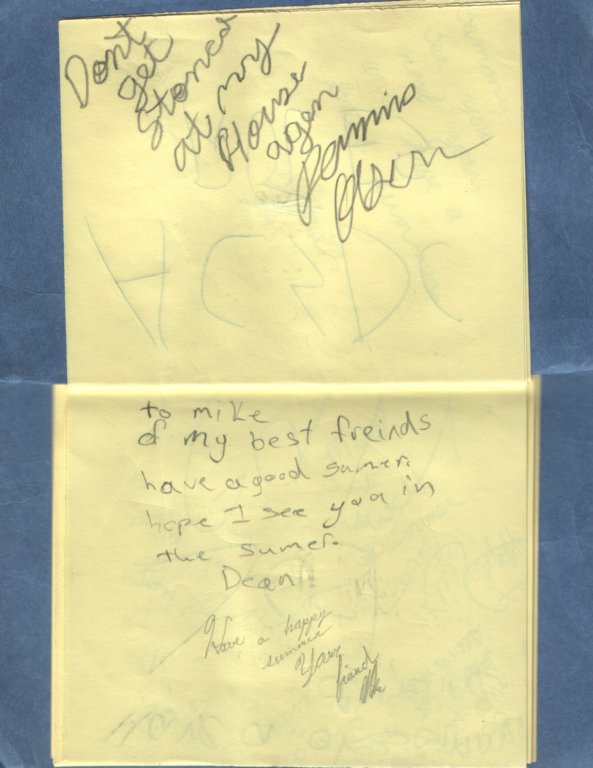 Dont
get
Stoned
at my
House
agen
Olsen
AC DC
to mike
of my best freinds
have a good sumer.
hope I see you in
the sumer.
Dean
Have a happy
summer
Your
friend